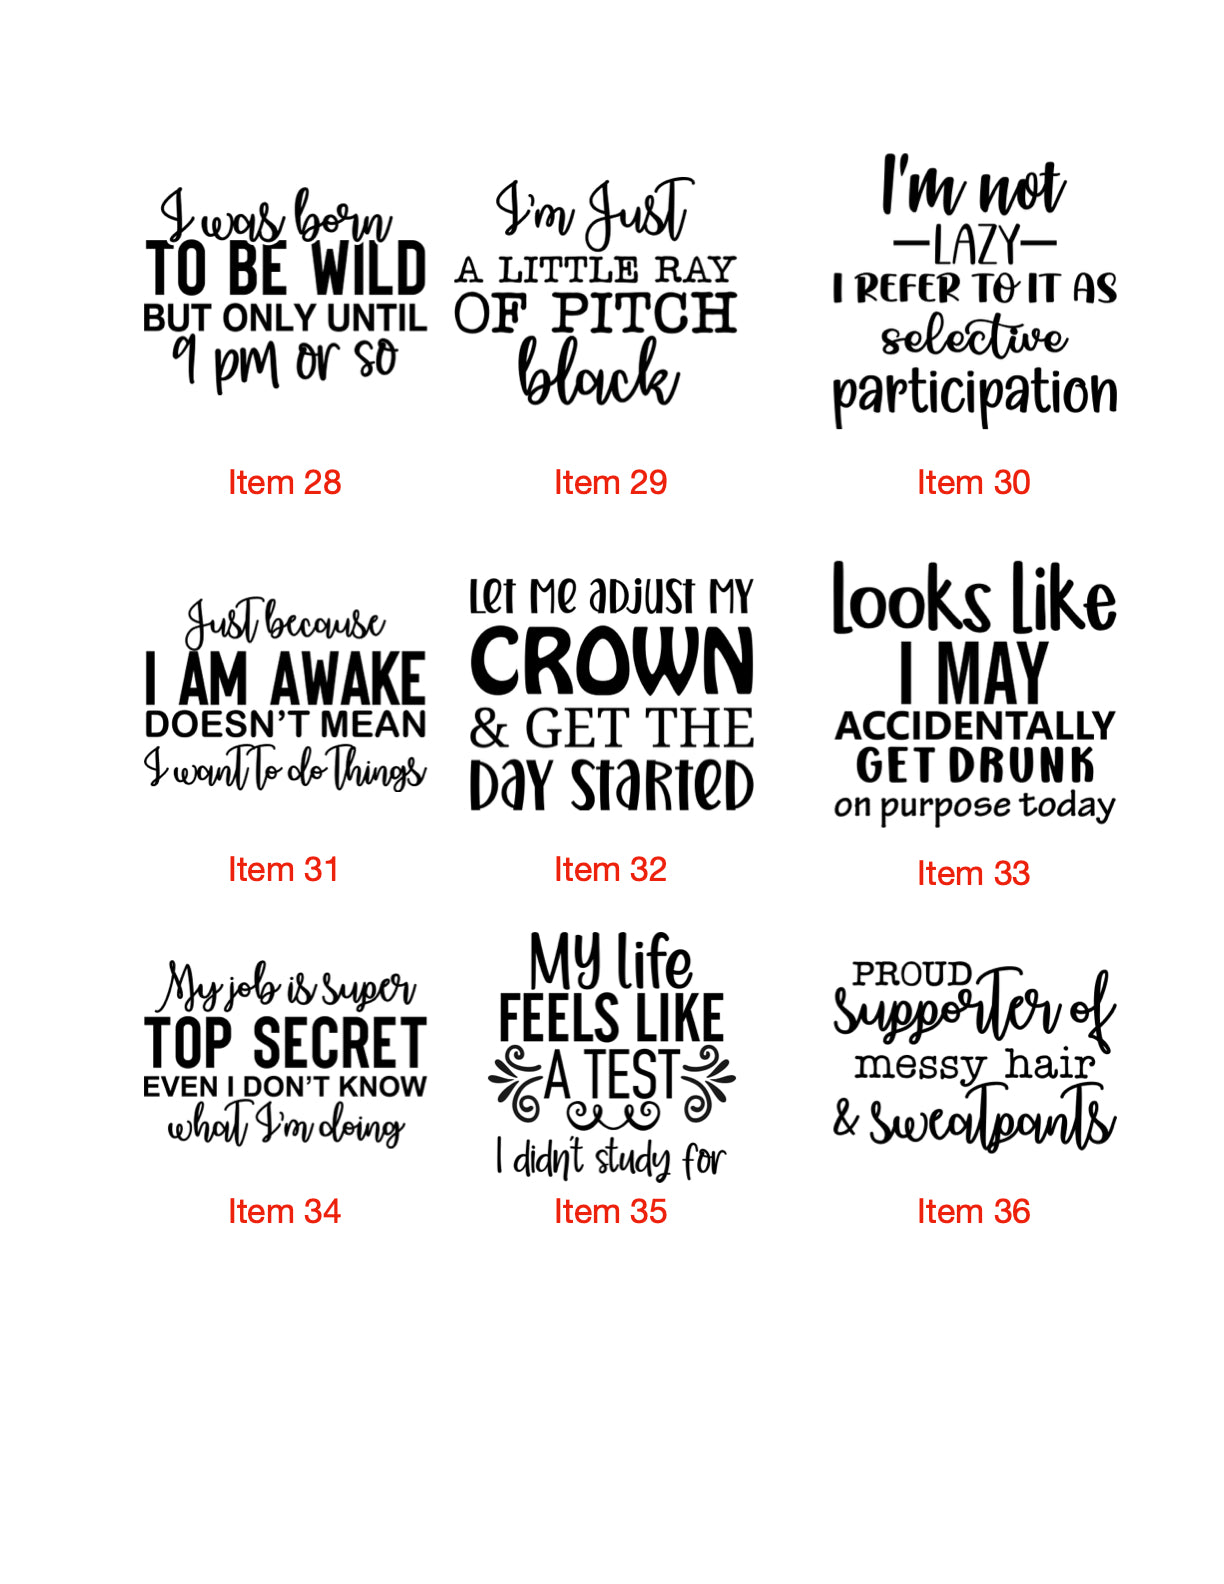 I was born
TO BE WILD
BUT ONLY UNTIL
9 pm or so
Item 28
I'm Just
A LITTLE RAY
OF PITCH
black
Item 29
I'm not
—LAZY—
I REFER TO IT AS
selective
participation
Item 30
Just because
I AM AWAKE
DOESN'T MEAN
I want to do things
Item 31
Let Me adjust MY
CROWN
& GET THE
DAY StaRteD
Item 32
looks like
I MAY
ACCIDENTALLY
GET DRUNK
on purpose today
Item 33
My job is super
TOP SECRET
EVEN I DON'T KNOW
what I'm doing
Item 34
My life
FEELS LIKE
A TEST
I didn't study for
Item 35
PROUD
supporter of
messy hair
& sweatpants
Item 36